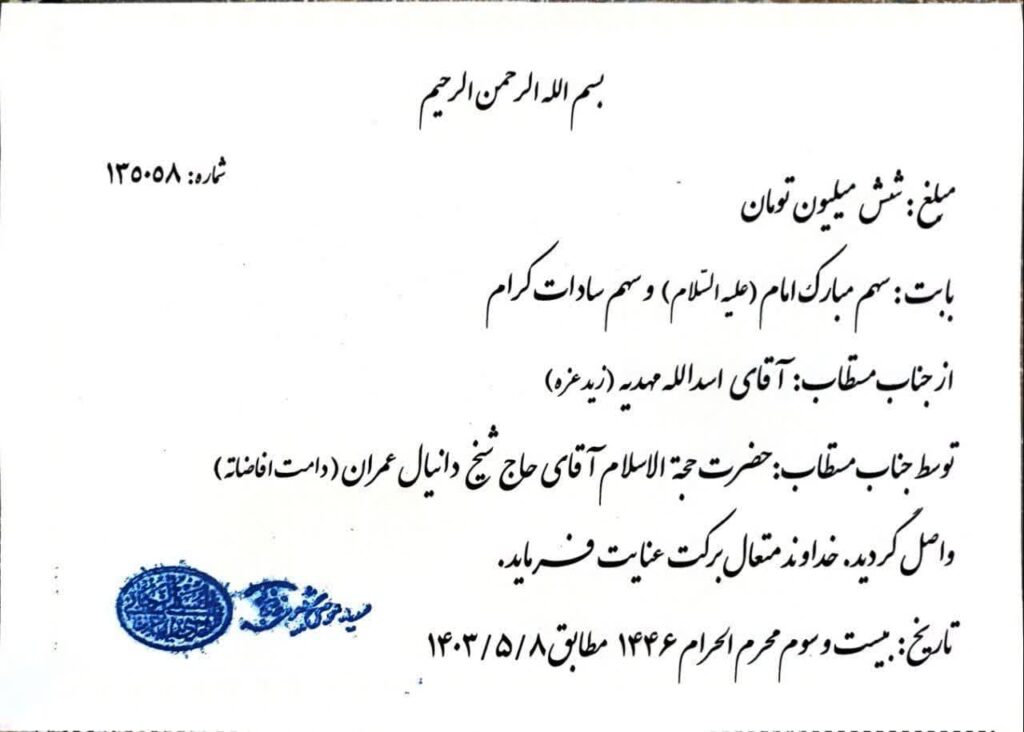 بسم الله الرحمن الرحیم
شماره: ۱۳۵۰۵۸
مبلغ: شش میلیون تومان
بابت: سهم مبارک امام (علیه السّلام) و سهم سادات کرام
از جناب مستطاب: آقای اسدالله مهدیه (زید عزه)
توسط جناب مستطاب: حضرت حجة الاسلام آقای حاج شیخ دانیال عمران (دامت افاضاته)
واصل گردید. خداوند متعال برکت عنایت فرماید.
تاریخ: بیست و سوم محرم الحرام ۱۴۴۶ مطابق ۱۴۰۳/۵/۸